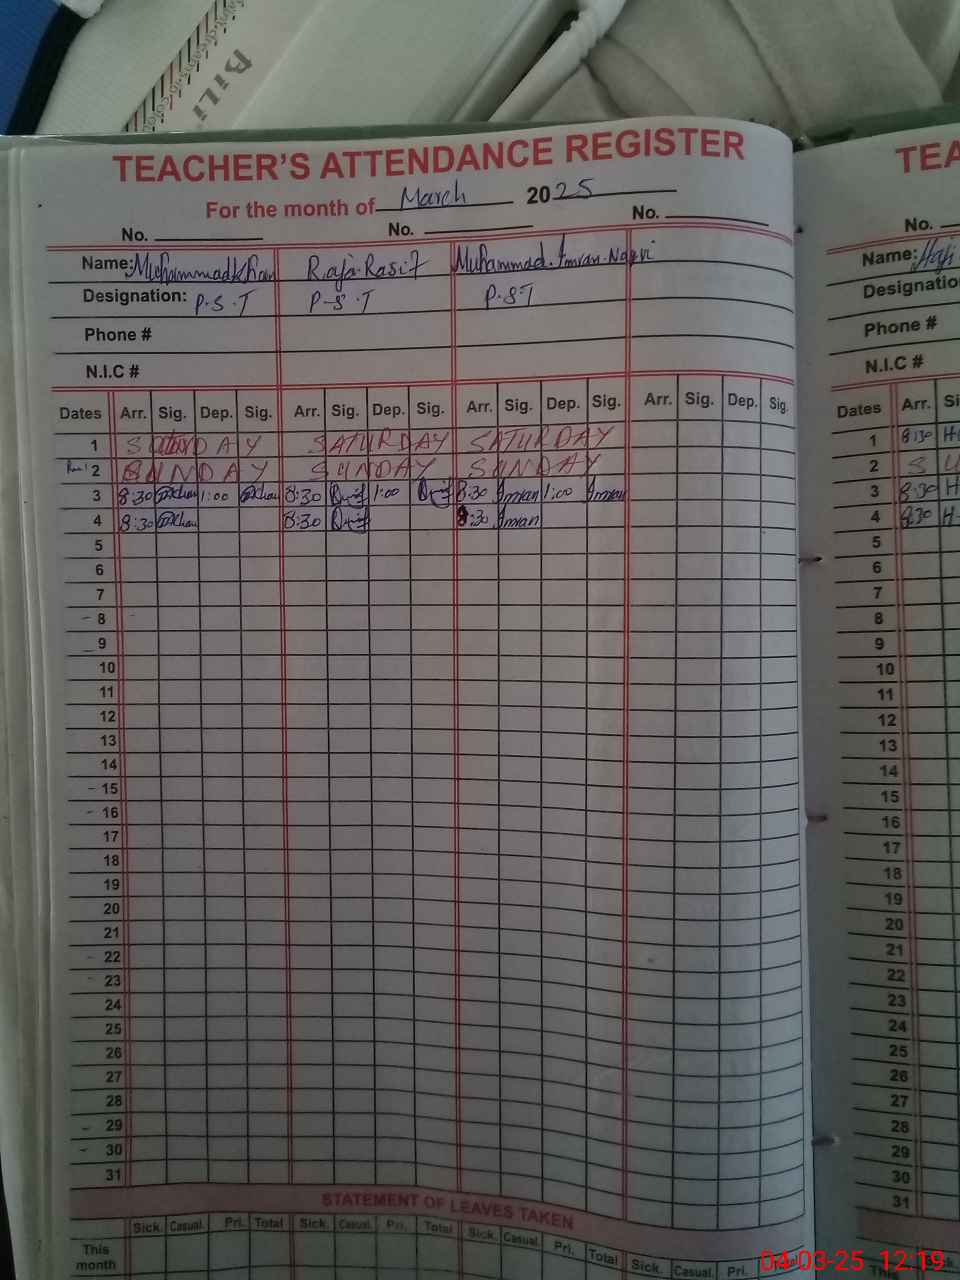 BiLi
TEACHER'S ATTENDANCE REGISTER
For the month of March 2025
No. No. No.
Name: Muhammad Khan Raja Rasif Muhammad Imran Naqvi
Designation: P.S.T P-S.T P.S.T
Phone #
N.I.C #
Dates Arr. Sig. Dep. Sig. Arr. Sig. Dep. Sig. Arr. Sig. Dep. Sig. Arr. Sig. Dep. Sig.
1 SATURDAY SATURDAY SATURDAY
2 SUNDAY SUNDAY SUNDAY
3 8:30 Khan 1:00 Khan 8:30 1:00 8:30 Imran 1:00 Imran
4 8:30 Khan 8:30 8:30 Imran
5
6
7
8
9
10
11
12
13
14
15
16
17
18
19
20
21
22
23
24
25
26
27
28
29
30
31
STATEMENT OF LEAVES TAKEN
Sick. Casual. Pri. Total Sick. Casual. Pri. Total Sick. Casual. Pri. Total Sick. Casual. Pri. Total
This month
TEA
No.
Name: Haji
Designatio
Phone #
N.I.C #
Dates Arr. Si
1 8:30 H
2 S U
3 8:30 H
4 8:30 H
5
6
7
8
9
10
11
12
13
14
15
16
17
18
19
20
21
22
23
24
25
26
27
28
29
30
31
04-03-25 12:19